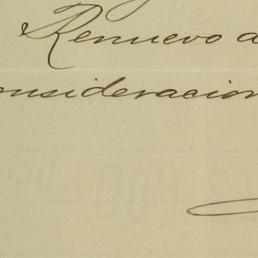 Renuevo a
onsideracion